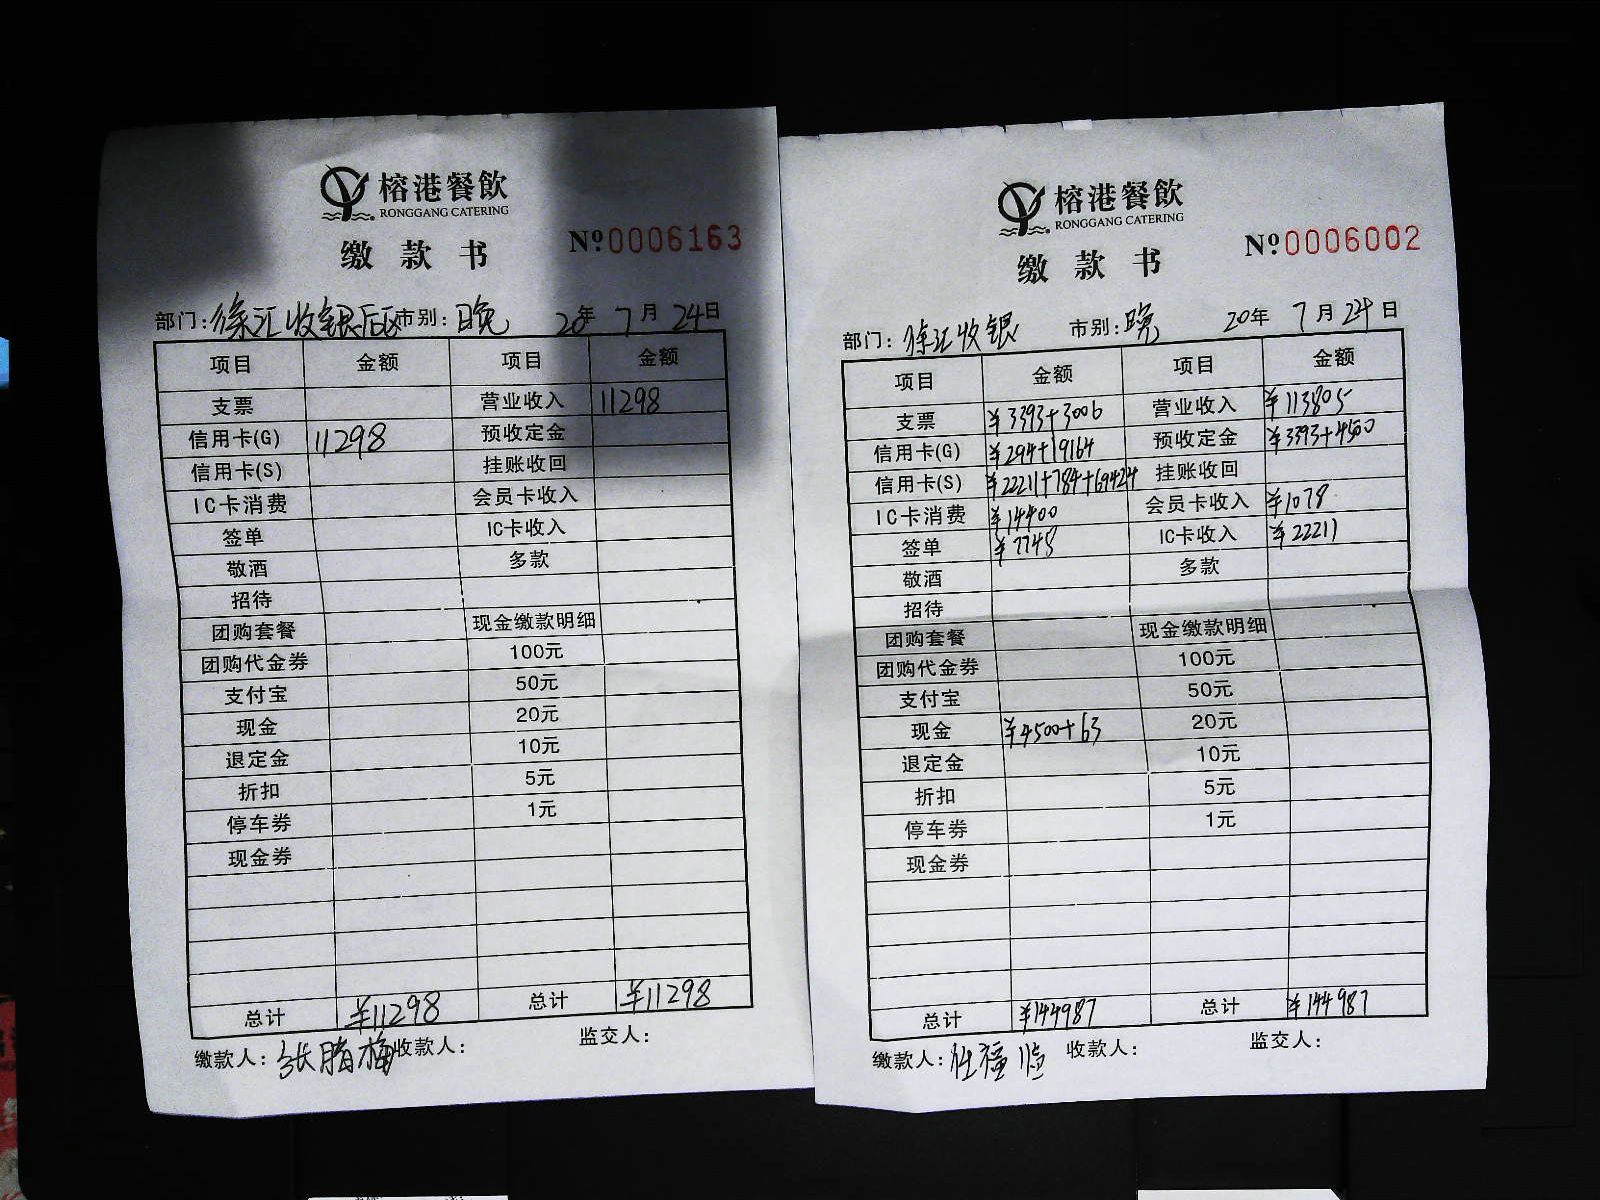 榕港餐飲
RONGGANG CATERING
缴款书
Nº0006163
部门:徐汇收银后区 市别:晚 20年7月24日
项目 金额 项目 金额
支票 营业收入 11298
信用卡(G) 11298 预收定金
信用卡(S) 挂账收回
IC卡消费 会员卡收入
签单 IC卡收入
敬酒 多款
招待
团购套餐 现金缴款明细
团购代金券 100元
支付宝 50元
现金 20元
退定金 10元
折扣 5元
停车券 1元
现金券
总计 ¥11298 总计 ¥11298
缴款人:张腊梅 收款人: 监交人:
榕港餐飲
RONGGANG CATERING
缴款书
Nº0006002
部门:徐汇收银 市别:晚 20年7月24日
项目 金额 项目 金额
支票 ¥3393+3006 营业收入 ¥113805
信用卡(G) ¥294+19164 预收定金 ¥3393+4500
信用卡(S) ¥22211+784+69424 挂账收回
IC卡消费 ¥14400 会员卡收入 ¥1078
签单 ¥7748 IC卡收入 ¥22211
敬酒 多款
招待
团购套餐 现金缴款明细
团购代金券 100元
支付宝 50元
现金 ¥4500+63 20元
退定金 10元
折扣 5元
停车券 1元
现金券
总计 ¥144987 总计 ¥144987
缴款人: 收款人: 监交人: